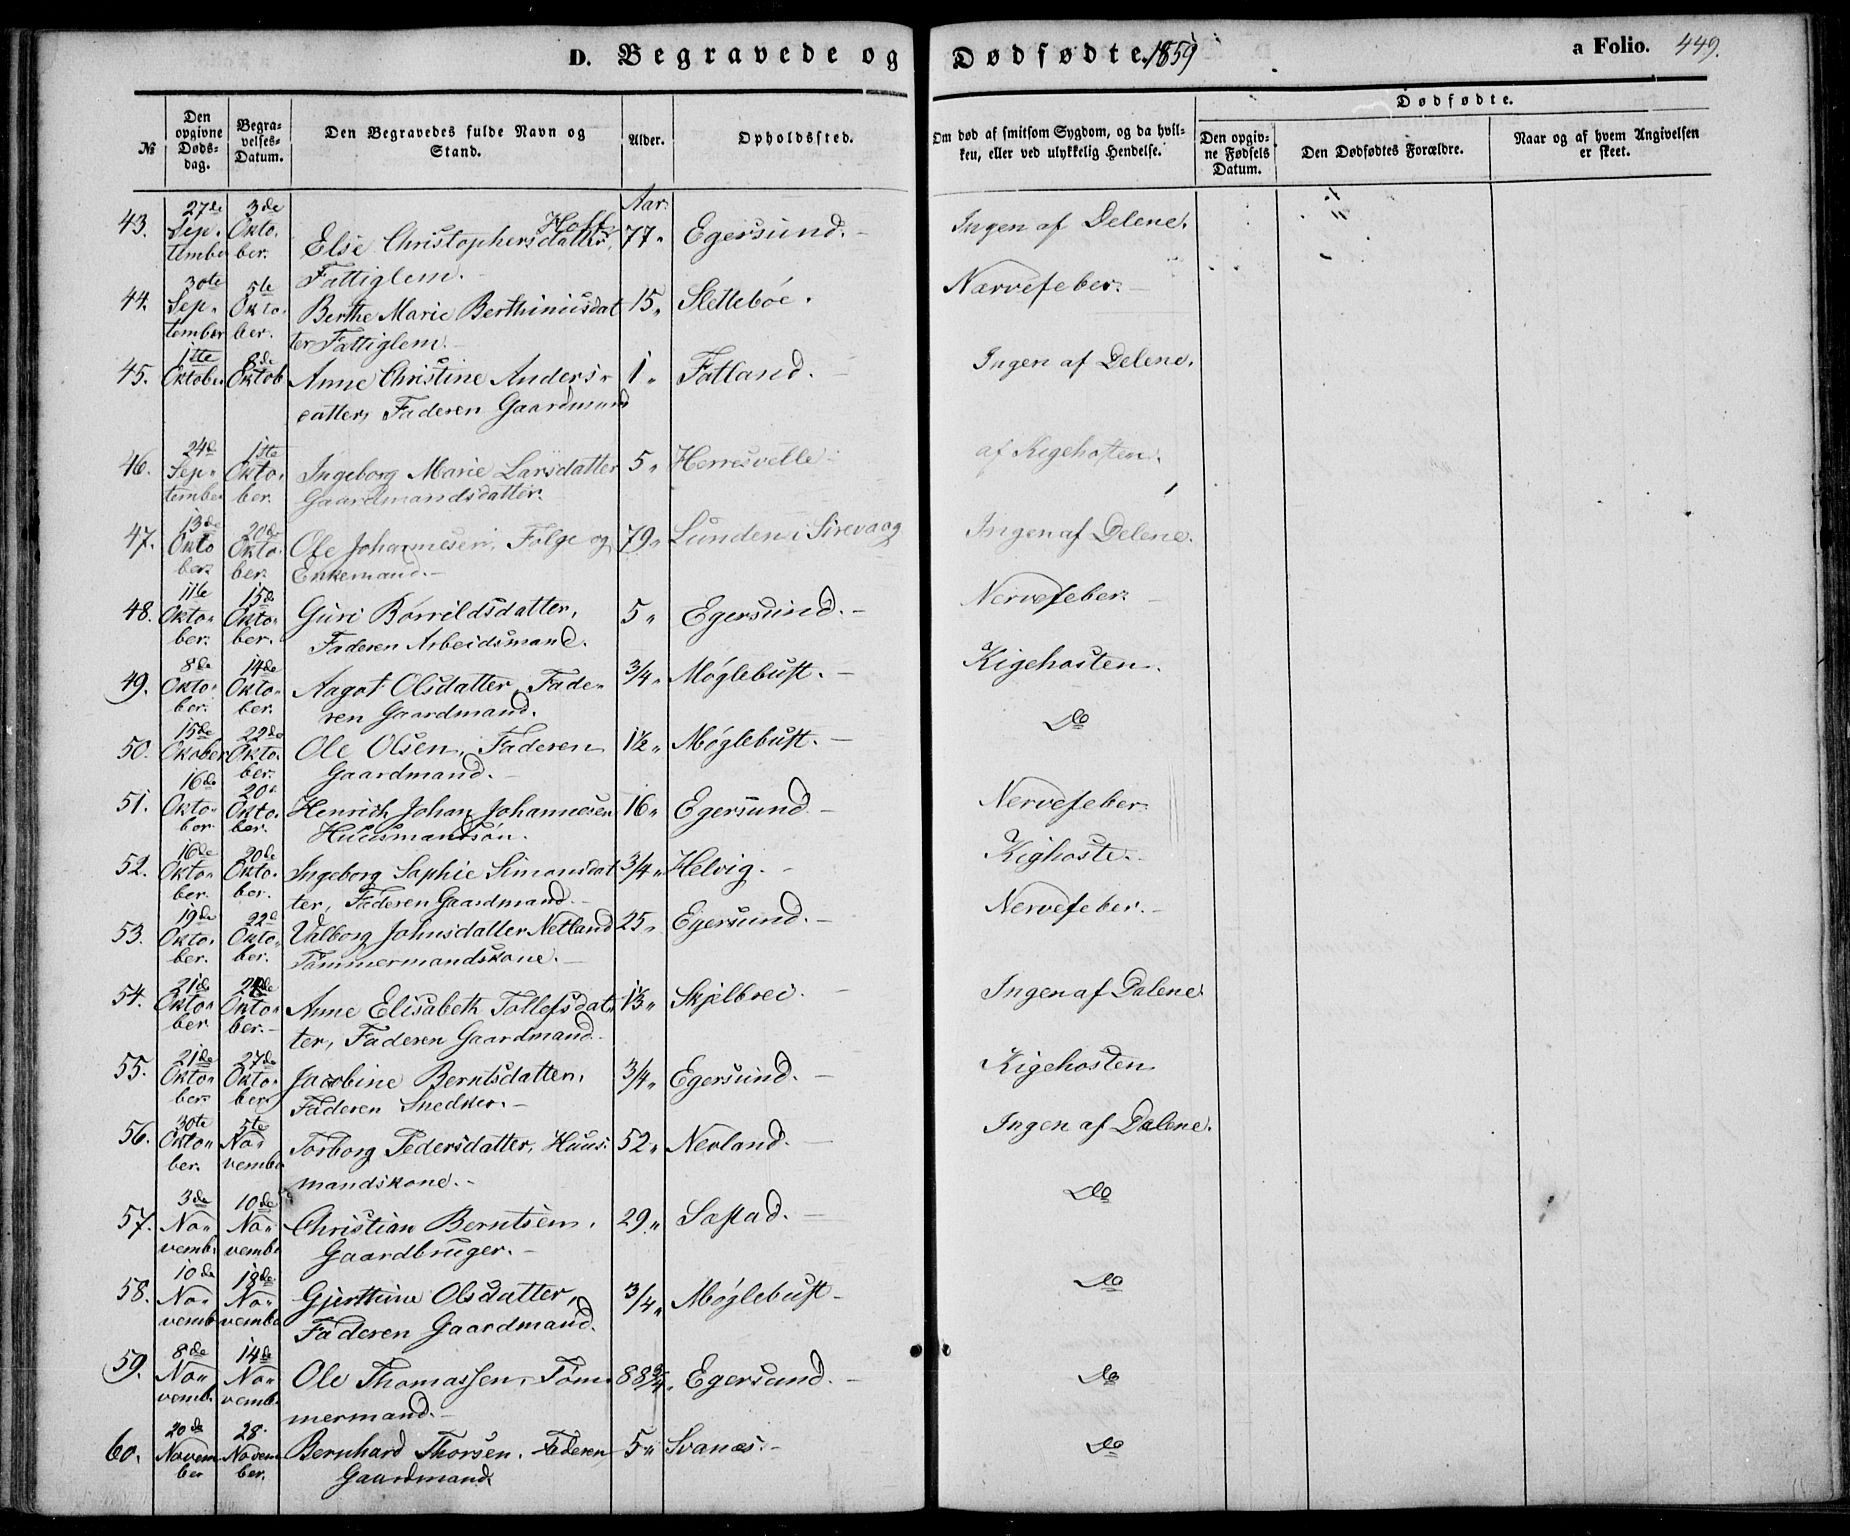 D. Begravede og Dødfødte. 1859 a Folio. 449.
№
Den opgivne Døds-dag.
Begra-velses-Datum.
Den Begravedes fulde Navn og Stand.
Alder.
Opholdssted.
Om død af smitsom Sygdom, og da hvil-ken, eller ved ulykkelig Hendelse.
Dødfødte.
Den opgiv-ne Fødsels Datum.
Den Dødfødtes Forældre.
Naar og af hvem Angivelsen er skeet.
Aar
43. 27de Sep-tember 3de Okto-ber. Else Christophersdatter Fattiglem. 77" Egersund. Ingen af Delene.
44. 30te Sep-tember 5te Okto-ber. Berthe Marie Berthiniusdat-ter Fattiglem. 15" Slettebøe. Nærvefeber.
45. 1tte Oktober 8de Oktob Anne Christine Anders-datter, Faderen Gaardmand 1" Fotland. Ingen af Delene.
46. 24de Sep-tember 1ste Okto-ber. Ingeborg Marie Larsdatter Gaardmandsdatter. 5" Herresvelle af Kigehosten.
47. 13de Okto-ber 20de Okto-ber. Ole Johannesen, Følge og Enkemand. 79" Lunden i Sirevaag Ingen af Delene.
48. 11te Okto-ber. 15de Okto-ber. Guri Børrildsdatter, Faderen Arbeidsmand. 5" Egersund. Nervefeber.
49. 8de Okto-ber. 14de Okto-ber. Aagot Olsdatter, Fade-ren Gaardmand. 3/4" Møglebust. Kigehosten.
50. 15de Okober 22de Okto-ber. Ole Olsen, Faderen Gaardmand. 1½" Møglebust. Do
51. 16de Okto-ber 20de Okto-ber. Henrich Johan Johannesen Huusmandssøn. 16" Egersund. Nervefeber.
52. 16de Okto-ber. 20de Okto-ber. Ingeborg Sophie Simonsdat-ter, Faderen Gaardmand. 3/4" Helvig. Kighoste.
53. 19de Okto-ber. 22de Okto-ber. Valborg Johnsdatter Netland Tømmermandskone. 25" Egersund. Nervefeber.
54. 21de Okto-ber Okto-ber. Anne Elisabeth Tollefsdat-ter, Faderen Gaardmand. 1⅓" Skjelbrei. Ingen af Dalene
55. 21de Okto-ber 27de Okto-ber Jacobine Berntsdatter, Faderen Snedker. 3/4" Egersund. Kigehosten
56. 30te Okto-ber. 5te No-vembe Torborg Pedersdatter, Huus-mandskone. 52" Nevland. Ingen af Dalene.
57. 3de No-vemb. 10de No-vembe Christian Berntsen, Gaardbruger. 29" Sæstad. Do
58. 10de No-vemb 18de No-vembe Gjerttine Olsdatter, Faderen Gaardmand. 3/4" Møglebust. Do
59. 8de No-vemb. 14de No-vemb. Ole Thomassen, Tøm-mermand. 88¾" Egersund. Do
60. 20de Novem-ber 28. Novem-ber. Bernhard Thorsen. Faderen Gaardmand 5" Svanæs. Do